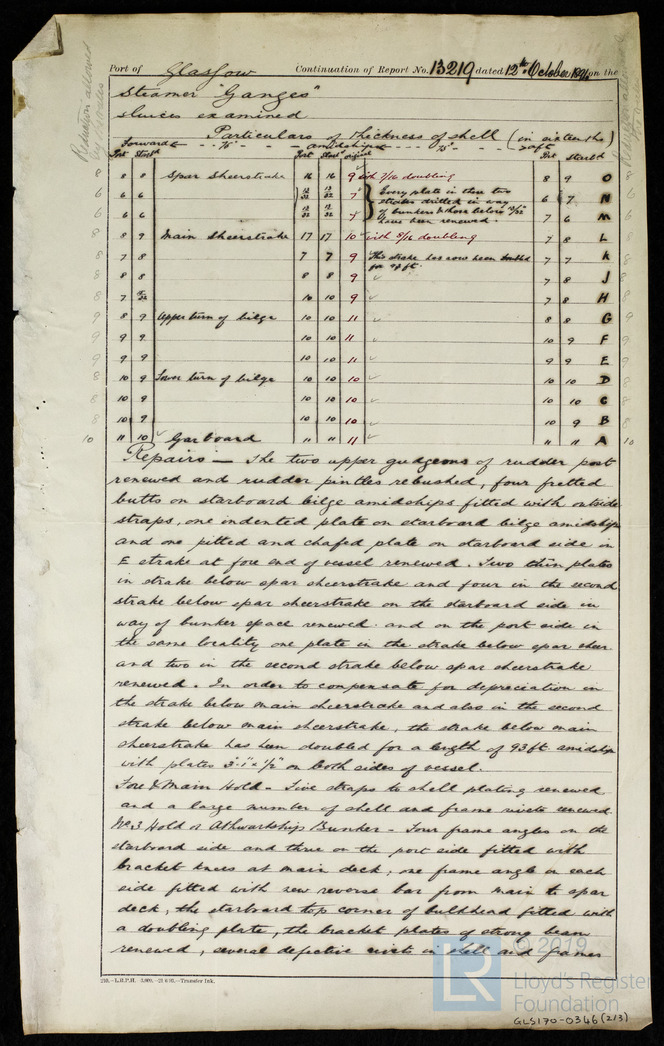 Port of Glasgow Continuation of Report No. 13219 dated 12th October on the
Steamer "Ganges"
sluices examined
Particulars of thickness of shell (in sixteenths)
Forward amidships aft
Port Starbd Port Starbd original Port Starbd
8 8 8 Spar Sheerstrake 16 16 9 with 7/16 doubling 8 9 O 8
6 6 6 12/32 13/32 7 Every plate in these two 6 7 N
strakes drilled in way
6 6 6 13/32 12/32 7 of bunkers & those below 12/32 7 6 M
have been renewed.
8 8 9 Main Sheerstrake 17 17 10 with 8/16 doubling 7 8 L 8
7 8 7 7 9 This strake has now been doubled 7 7 K
for 93 ft.
8 8 8 8 9 7 8 J
8 7 10 10 9 7 8 H 8
9 8 9 Upper turn of bilge 10 10 11 8 8 G 9
9 9 9 10 10 11 10 9 F 9
9 9 9 10 10 11 9 9 E 9
8 10 9 Lower turn of bilge 10 10 10 10 10 D 8
8 10 9 10 10 10 10 10 C 8
8 10 9 10 10 10 10 9 B 8
10 11 10 Garboard 11 11 11 11 11 A 10
Repairs — The two upper gudgeons of rudder post
renewed and rudder pintles rebushed, four fretted
butts on starboard bilge amidships fitted with outside
straps, one indented plate on starboard bilge amidships
and one pitted and chafed plate on starboard side in
E strake at fore end of vessel renewed. Two thin plates
in strake below spar sheerstrake and four in the second
strake below spar sheerstrake on the starboard side in
way of bunker space renewed. and on the port side in
the same locality one plate in the strake below spar sheer
and two in the second strake below spar sheerstrake
renewed. In order to compensate for depreciation in
the strake below main sheerstrake and also in the second
strake below main sheerstrake, the strake below main
sheerstrake has been doubled for a length of 93 ft amidships
with plates on both sides of vessel.
Fore & Main Hold - Five straps to shell plating renewed
and a large number of shell and frame rivets renewed.
No 3 Hold or Athwartship Bunker - Four frame angles on the
starboard side and three on the port side fitted with
bracket knees at main deck, one frame angle on each
side fitted with new reverse bar from main to spar
deck, the starboard top corner of bulkhead fitted with
a doubling plate, the bracket plates of strong beam
renewed, several defective rivets in shell and frames
210.—L.R.P.H. 3,000.—21 6 95.—Transfer Ink.
LR
© 2019
Lloyd's Register
Foundation
GLS170-0346 (2/3)